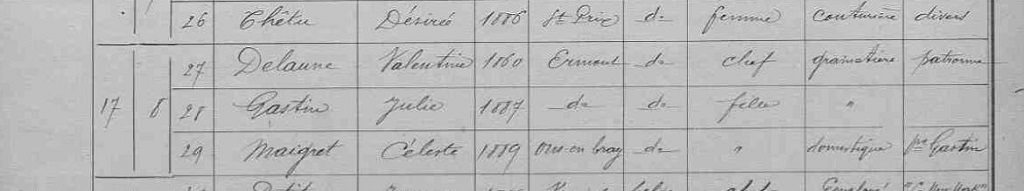 26 Thêtu Désirée 1886 St Prix do femme couturière divers
27 Delaune Valentine 1860 Ermont do chef grainetière patronne
17 8 28 Gastin Julie 1887 do do fille "
29 Maigret Céleste 1889 Ons-en-bray do " domestique pne Gastin